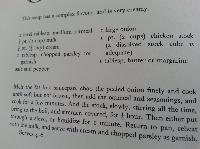 This soup has a complex flavour, and is very creamy.
1 large onion
1 pt. (2 cups) chicken stock
(a dissolved stock cube is
adequate)
1 tablesp. butter or margarine
pt. (1 cup) milk
pt. (¼ cup) cream
tablesp. chopped parsley for
garnish
salt and pepper
Melt the fat in a saucepan, chop the peeled onion finely and cook
until soft but not brown, then add the oatmeal and seasonings, and
cook for a few minutes. Add the stock, slowly, stirring all the time,
bring to the boil, and simmer, covered, for ½ hour. Then either put
through a sieve, or liquidise for 1 minute. Return to pan, reheat
with the milk, and serve with cream and chopped parsley as garnish.
Serves 4-6